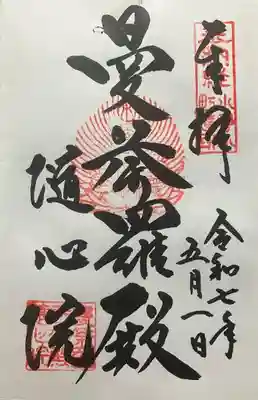 奉拝
令和七年
五月一日
曼荼羅殿
随心院